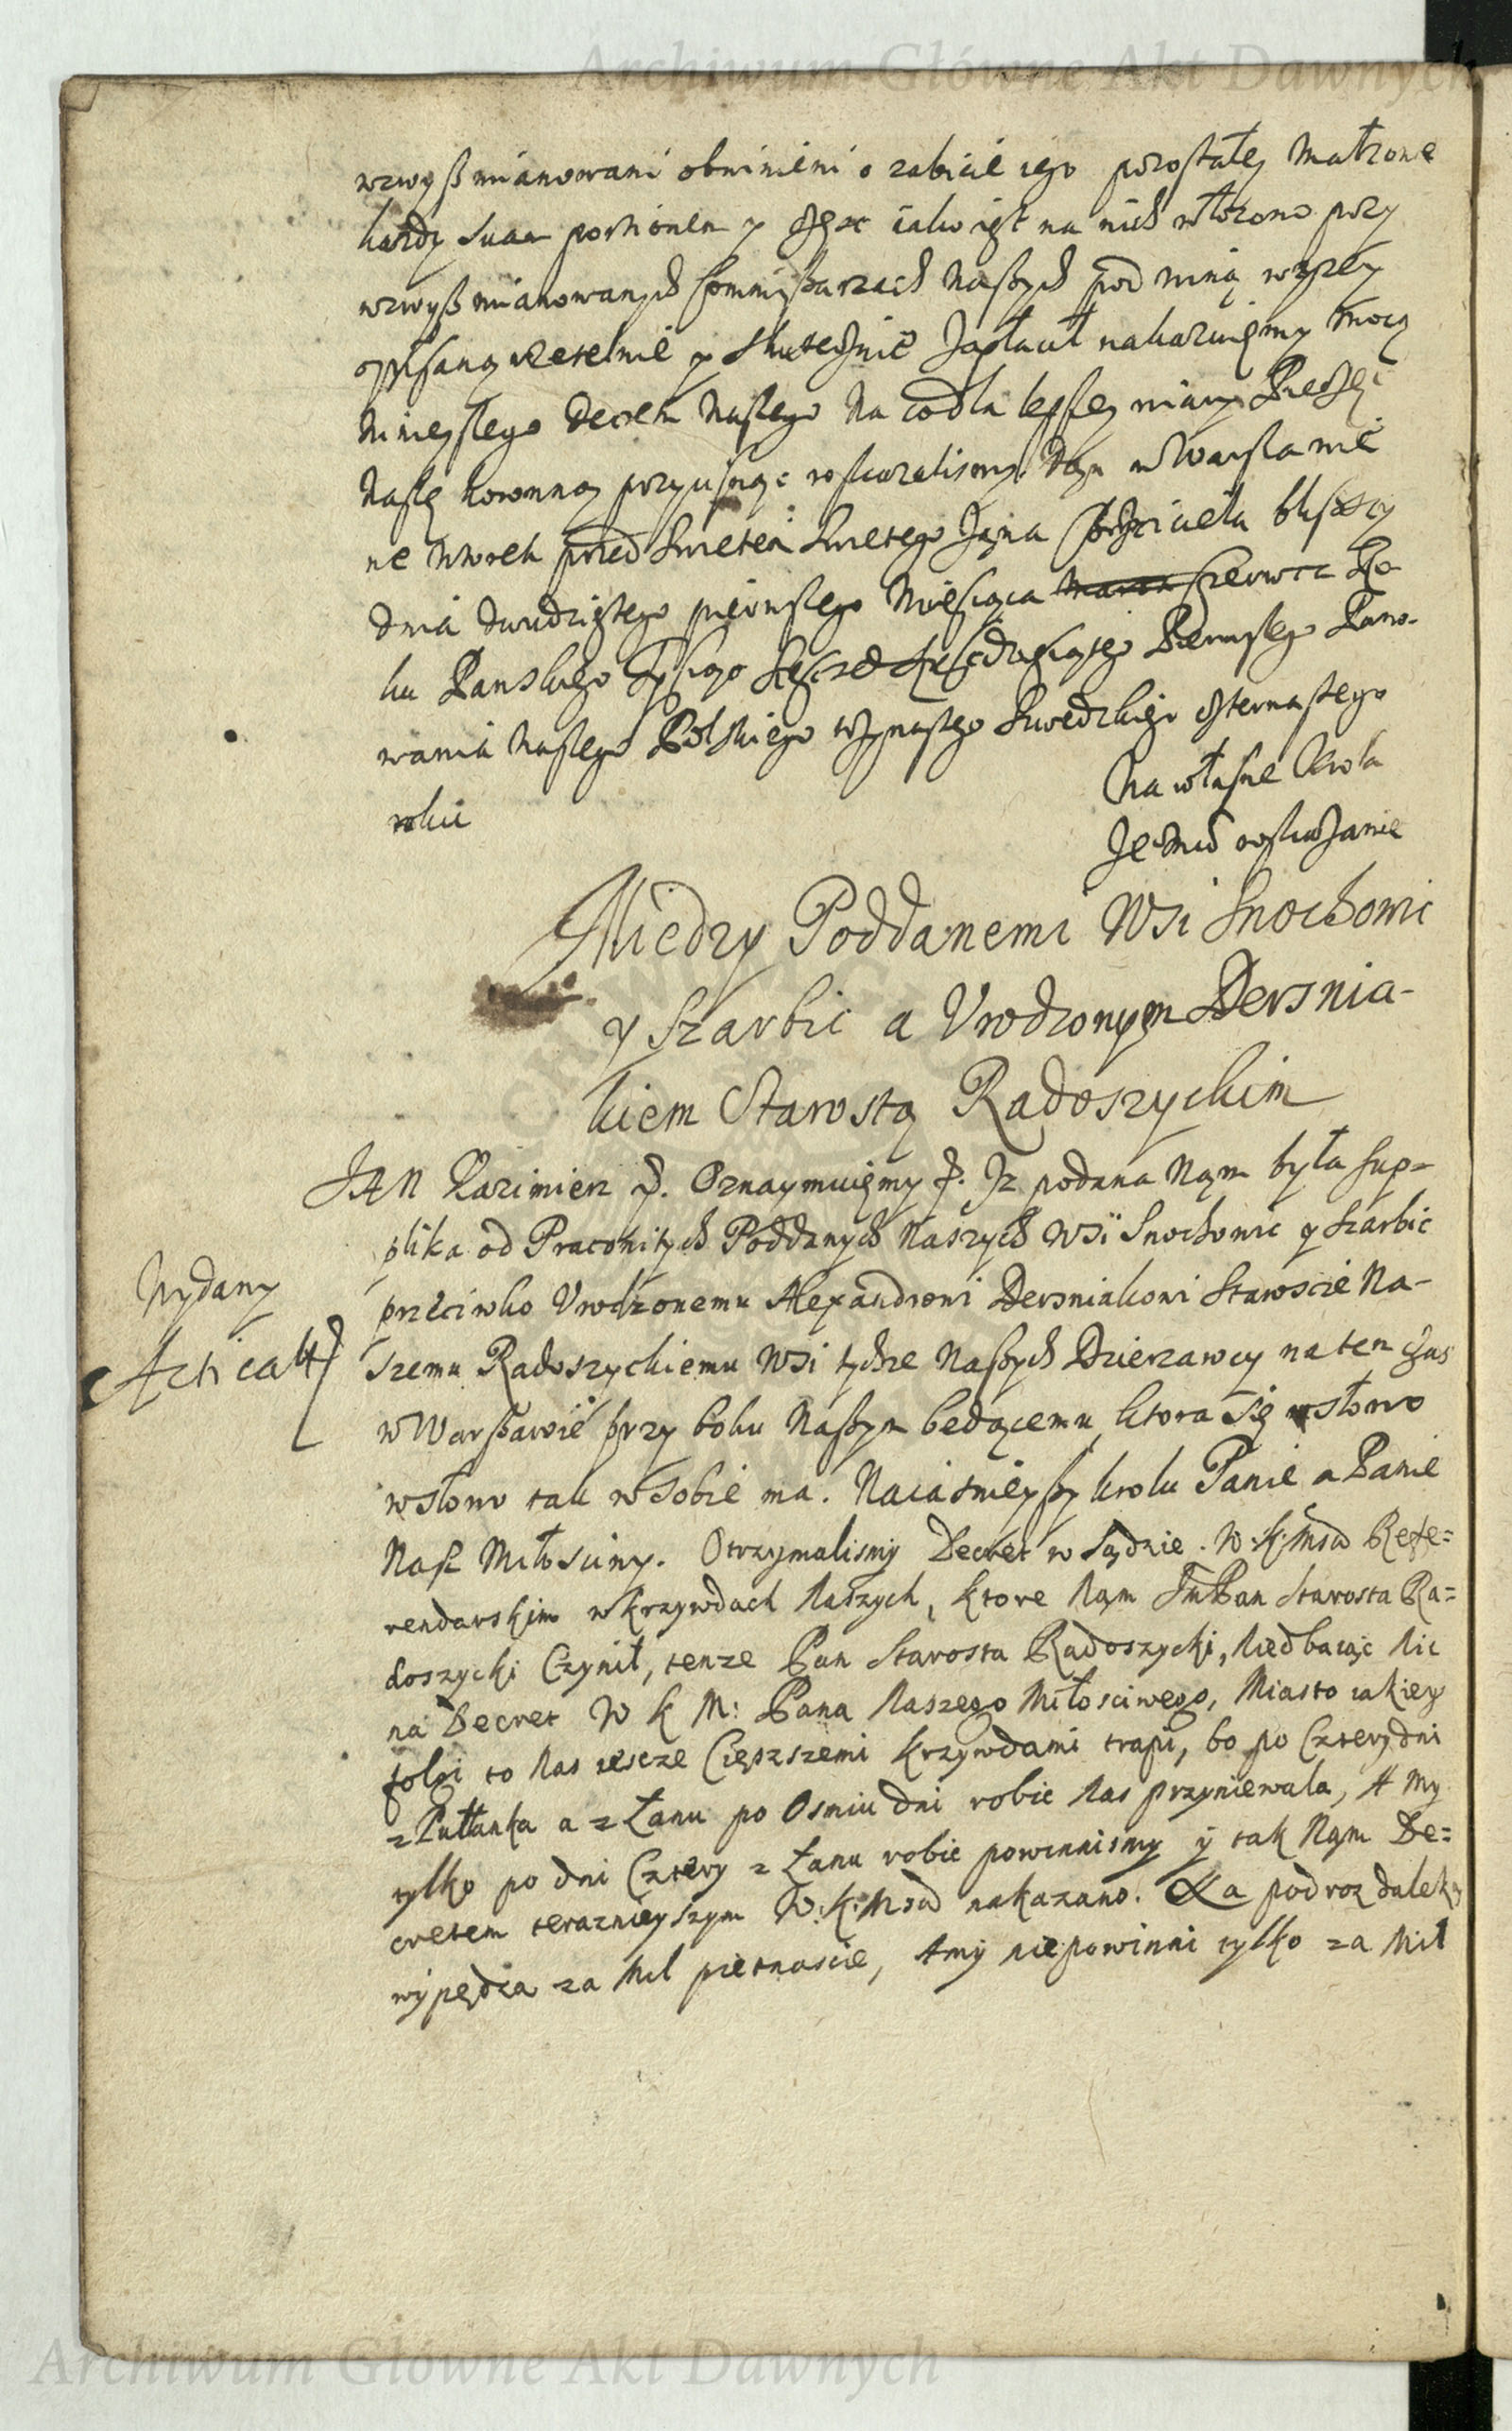 Archiwum Główne Akt Dawnych
wzwyß mianowani obwinieni o zabicie iego pozostałey Małzonce
kazdy suam portionem y część iako iest na nich włozono przy
wzwyß mianowanych Commißarzach Naßych pod winą wyzey
opisaną rzetelnie y skutecznie zapłacił nakazuięmy mocą
Ninieyszego Decretu Naszego Na co dla lepszey wiary Pieczęć
Naszę koronną przycisnąc roskazalismy. Dan w Warszawie
we wtorek przed Swietem Swietego Jana Chrzciciela bliskiey
dnia dwudziestego pierwszego Miesiąca Czerwca Ro-
ku Panskiego Tysiąc Sescset szescdziesiątego Pierwszego Pano-
wania Naszego Polskiego trzynastego Szwedzkiego czternastego
roku
Na własne Krola
Jegomsci roskazanie
Miedzy Poddanemi Wsi Snochowic
y Szarbic a Vrodzonym Dersnia-
kiem Starostą Radoszyckim
JAN Kazimierz &. Oznaymuięmy &. Iz podana Nąm była sup-
plika od Pracowitych Poddanych Naszych Wsi Snochowic y Szarbic
przeciwko Vrodzonemu Alexandrowi Dersniakowi Staroscie Na-
szemu Radoszyckiemu Wsi tychze Naßych Dzierzawcy na ten czas
w Warßawie przy boku Naßym będącemu, ktora się słowo
w słowo tak w sobie ma. Naiasnieyßy krolu Panie a Panie
Nasz Miłosciwy. Otrzymalismy Decret w Sądzie W: K: Msci Refe=
rendarskim w krzywdach Naszych, ktore Nąm JmPan Starosta Ra=
doszycki Czynił, tenze Pan Starosta Radoszycki, Niedbaiąc Nic
na Decret W K M: Pana Naszego Miłosciwego, Miasto iakiey
folgi to Nas iescze Cięszszemi krzywdami trapi, bo po Cztery dni
z Pułłanka a z Łanu po Osmiu dni robic Nas przyniewala, A My
tylko po dni Cztery z Łanu robic powinnismy y tak Nąm De=
cretem terazniejszym W: K: Msci nakazano. Za podroz daleką
wypędza za Mil pietnascie, A my niepowinni tylko za Mil
Wydany
Archiwum Główne Akt Dawnych